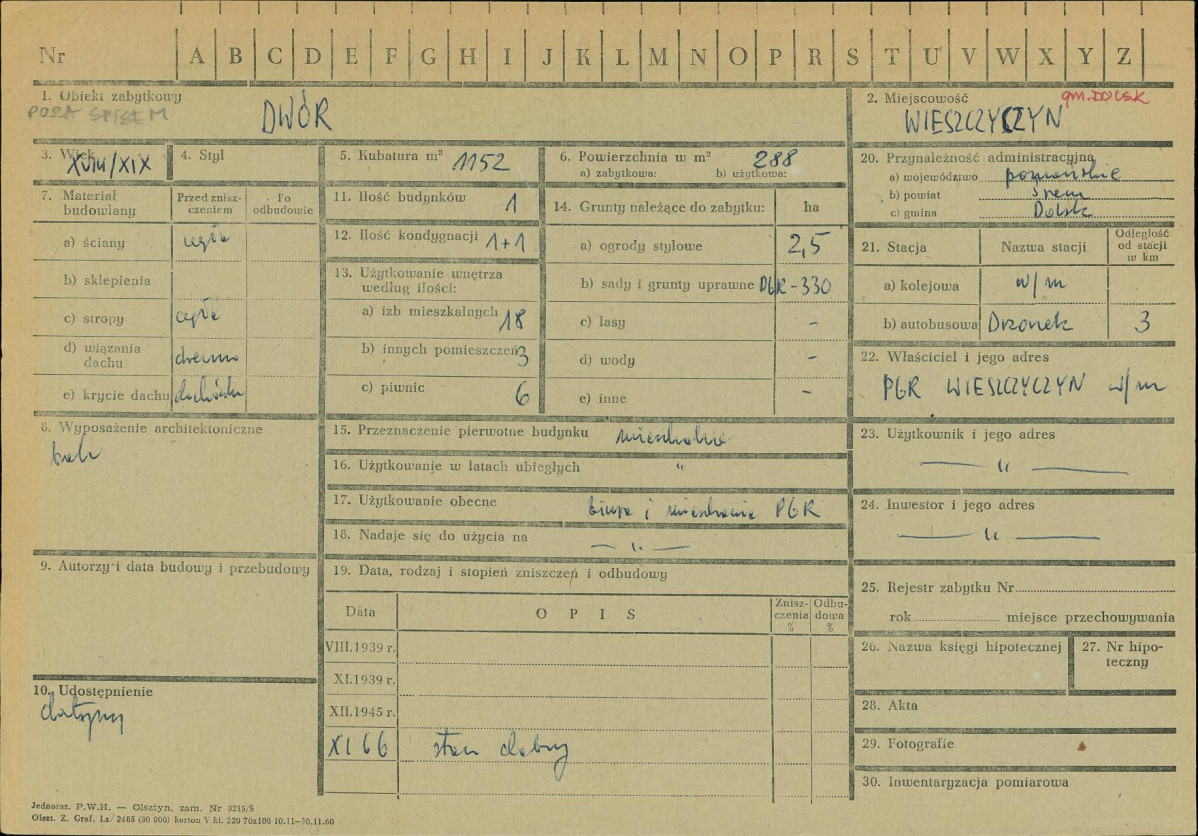 Nr A B C D E F G H I J K L M N O P R S T U V W X Y Z
1. Obiekt zabytkowy
POZA SPISEM
DWÓR
2. Miejscowość
gm. DOLSK
WIESZCZYCZYN
3. Wiek
XVIII/XIX
4. Styl
5. Kubatura m³ 1152
6. Powierzchnia w m² 288
a) zabytkowa: b) użytkowa:
20. Przynależność administracyjna
a) województwo poznańskie
b) powiat Śrem
c) gmina Dolsk
7. Materiał budowlany
Przed znisz-
czeniem
Po
odbudowie
a) ściany cegła
b) sklepienia
c) stropy cegła
d) wiązania
dachu drewno
e) krycie dachu dachówka
11. Ilość budynków 1
12. Ilość kondygnacji 1+1
13. Użytkowanie wnętrza
według ilości:
a) izb mieszkalnych 18
b) innych pomieszczeń 3
c) piwnic 6
14. Grunty należące do zabytku: ha
a) ogrody stylowe 2,5
b) sady i grunty uprawne PGR-330
c) lasy -
d) wody -
e) inne -
21. Stacja Nazwa stacji
Odległość
od stacji
w km
a) kolejowa w/m
b) autobusowa Drzonek 3
22. Właściciel i jego adres
PGR WIESZCZYCZYN w/m
8. Wyposażenie architektoniczne
brak
15. Przeznaczenie pierwotne budynku mieszkalne
16. Użytkowanie w latach ubiegłych "
17. Użytkowanie obecne biura i mieszkania PGR
18. Nadaje się do użycia na — " —
23. Użytkownik i jego adres
— " —
24. Inwestor i jego adres
— " —
9. Autorzy i data budowy i przebudowy
19. Data, rodzaj i stopień zniszczeń i odbudowy
Data OPIS
Znisz-
czenia
%
Odbu-
dowa
%
VIII.1939 r.
XI.1939 r.
XII.1945 r.
XI 66 stan dobry
25. Rejestr zabytku Nr
rok miejsce przechowywania
26. Nazwa księgi hipotecznej
27. Nr hipo-
teczny
10. Udostępnienie
28. Akta
29. Fotografie
30. Inwentaryzacja pomiarowa
Jednoraz. P.W.H. — Olsztyn, zam. Nr 3215/S
Olszt. Z. Graf. Lz. 2485 (30 000) karton V kl. 220 70x100 10.11—30.11.60